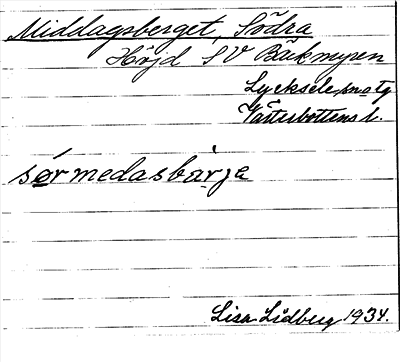 Middagsberget, Södra
Höjd SV Bäckmyren
Lycksele sn o tg
Västerbottens l.
sørmedasbarja
Lisa Lidberg 1934.